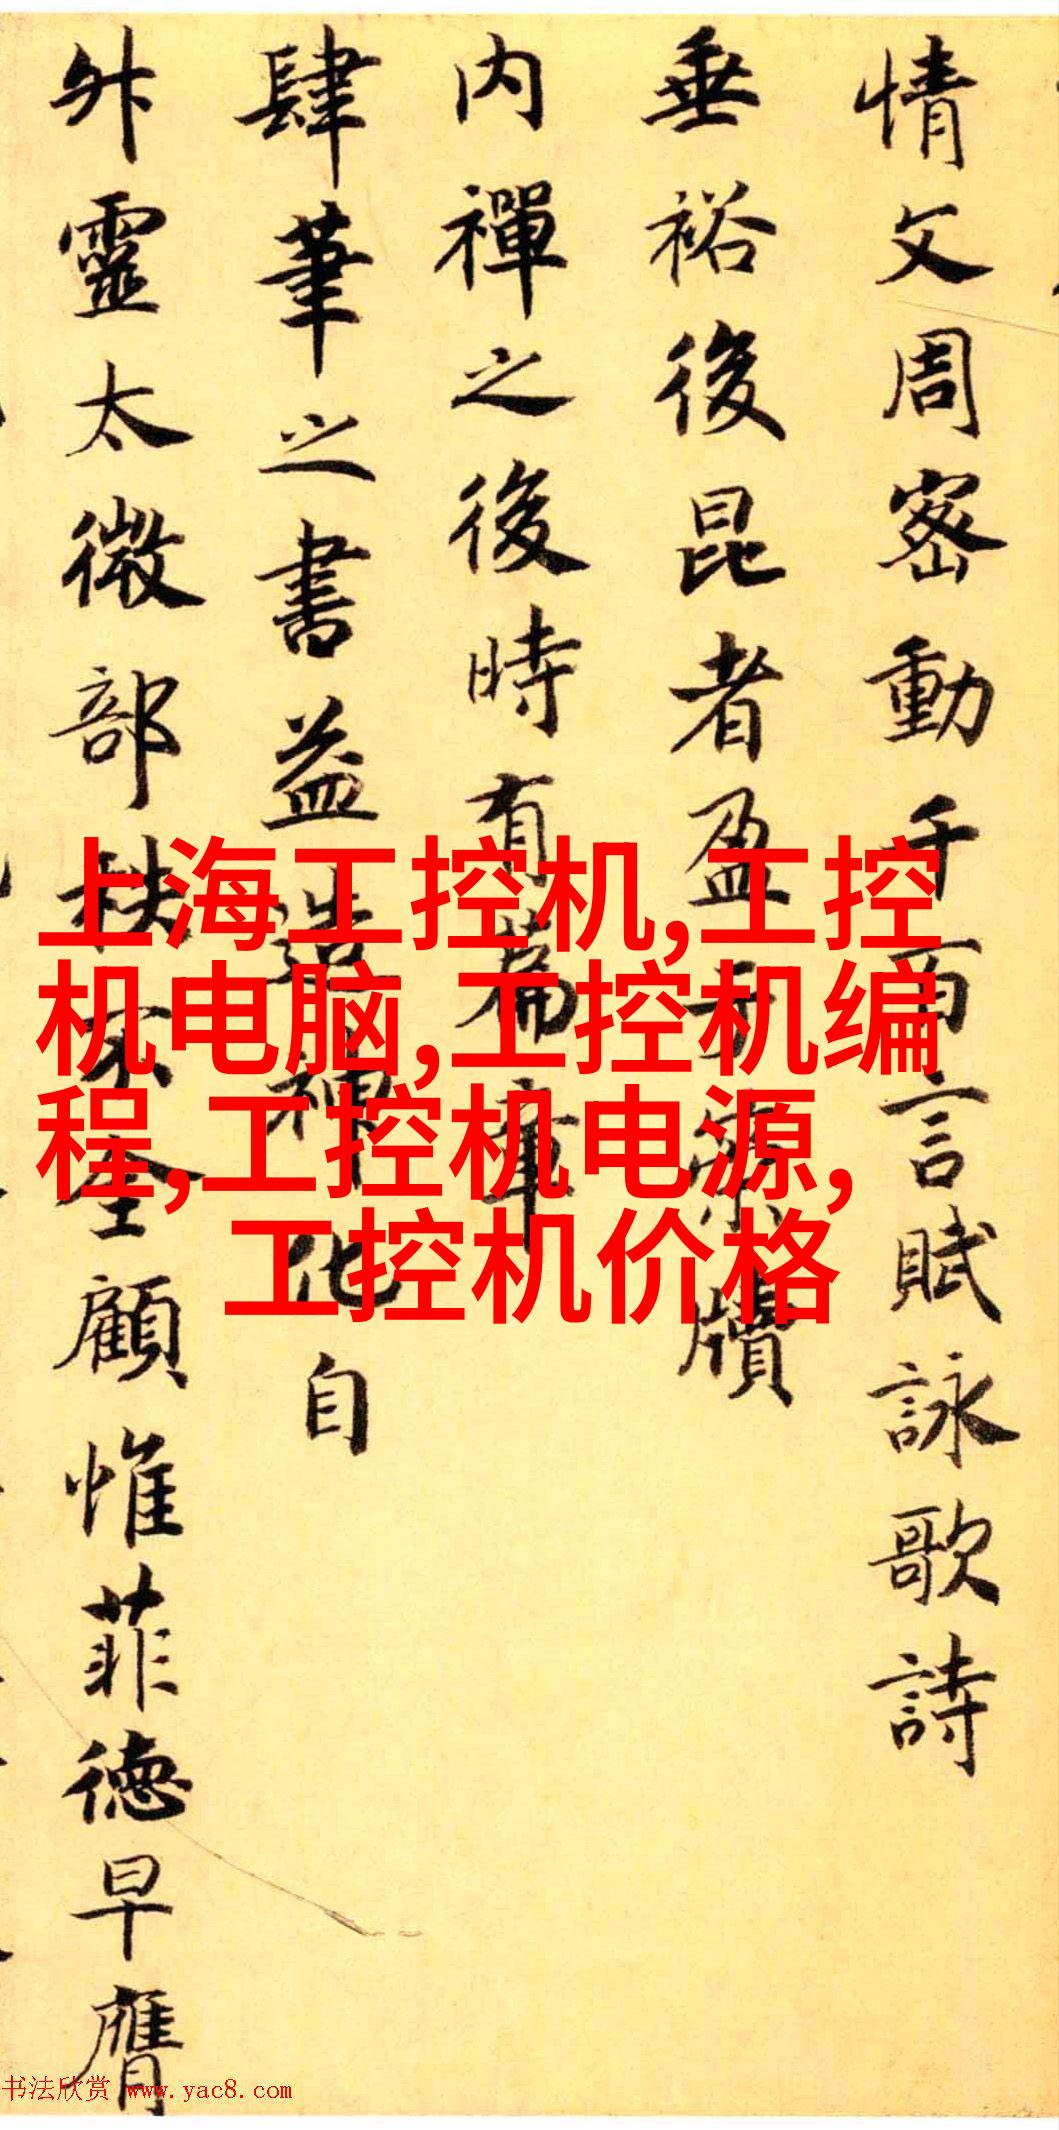 情文周密動千百言賦詠歌詩
垂裕後昆者盈于緗牘
内禪之後時有篇章
肆筆之書益造神化自
外靈太微部秩不全顧惟菲德早膺
上海工控机,工控
机电脑,工控机编
程,工控机电源,
工控机价格
书法欣赏 www.yac8.com